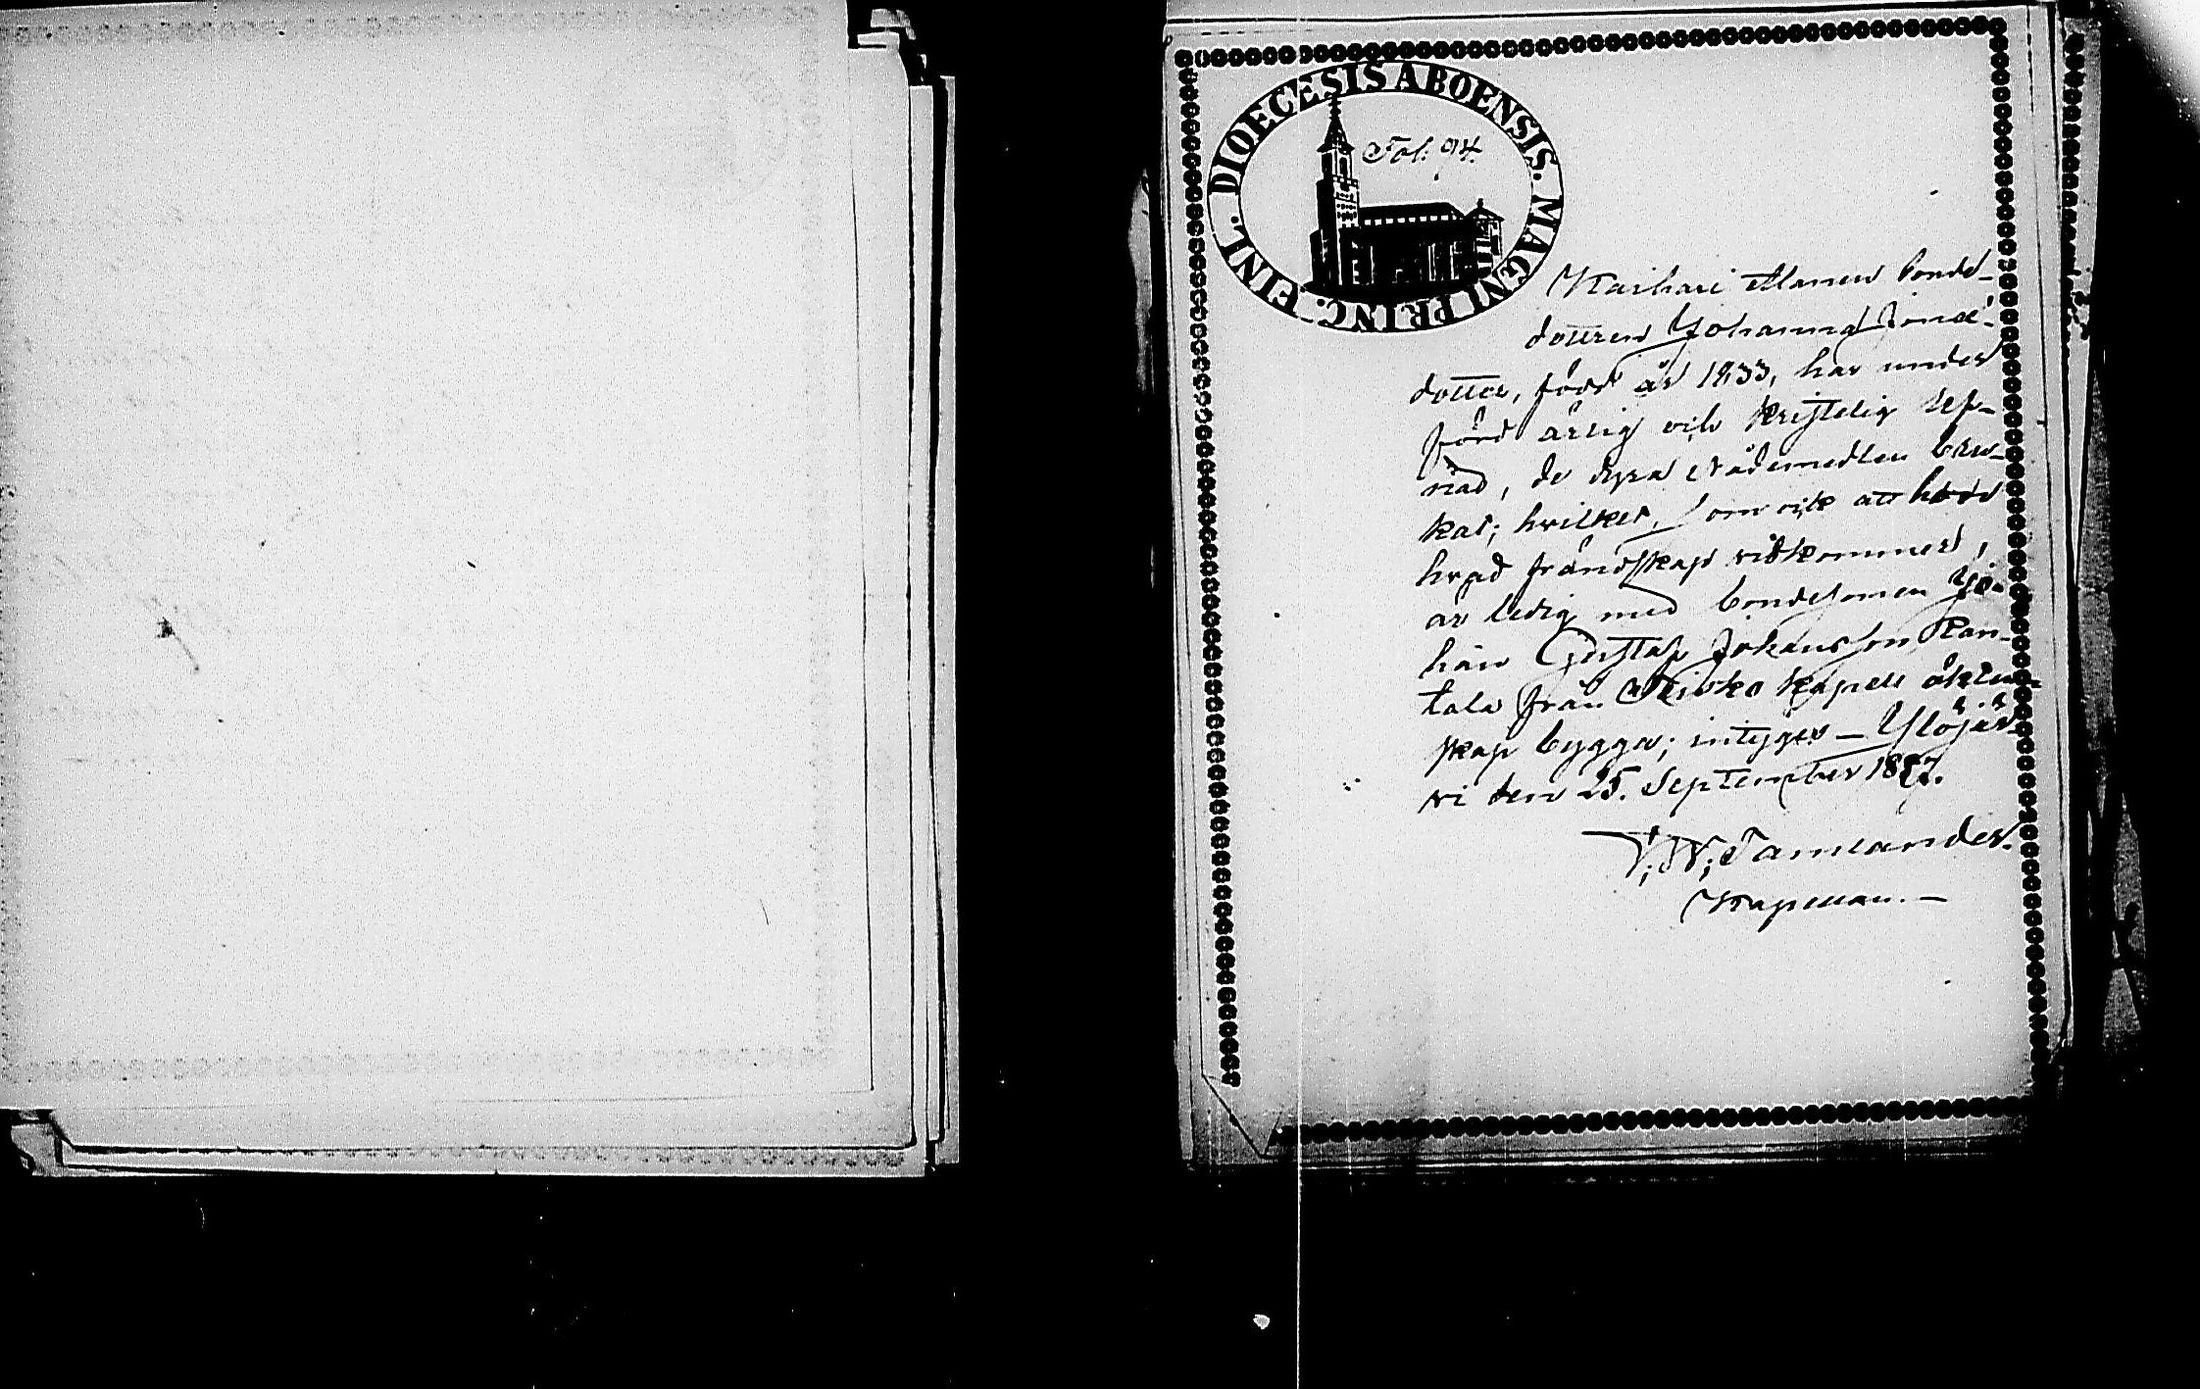 DIOECESIS ABOENSIS. MAGNI PRINC. FINL.
Fol. 94.
Kaihari Manen bonde-
dottren Johanna Jona-
dotter, född år 1833, har under
förd ärlig och kristelig lef-
nad, de dyra Nådemedlen bru-
kat; hvilket, som ock att
hvad frändskap vidkommer,
är ledig med bondesonen Jo-
han Gustaf Johansson Kan-
tala från kapell äkten-
skap bygga; intygar – Ylöjär-
vi den 25. September 1857.
T. W. Tamlander.
Kapellan. –